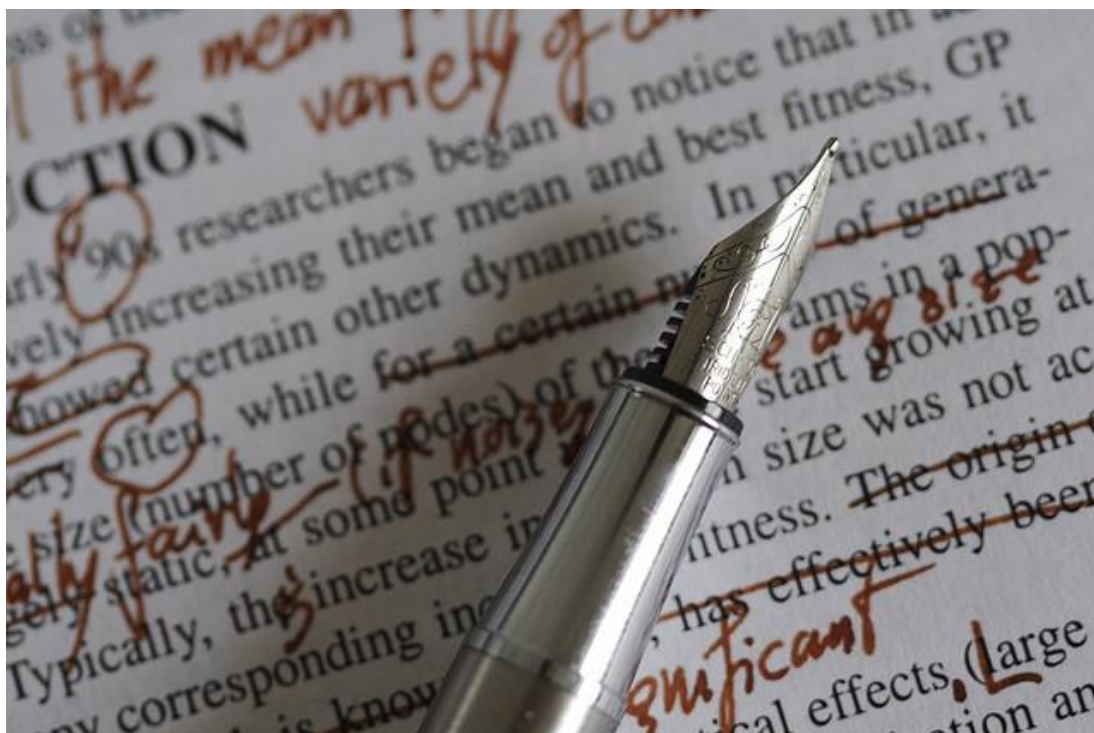 ss of the
the mean
variety of
UCTION
arly 90s researchers began to notice that in
vely increasing their mean and best fitness, GP
howed certain other dynamics. In particular, it
ery often, while for a certain of genera-
avg size
e size (number of nodes) of the ams in a pop-
ally fairly (if noisy
gely static, at some point start growing at
Typically, the increase in n size was not ac
s
ny corresponding inc itness. The origin
is know , has effectively been
gnificant
ical effects, (Large
L
tion an